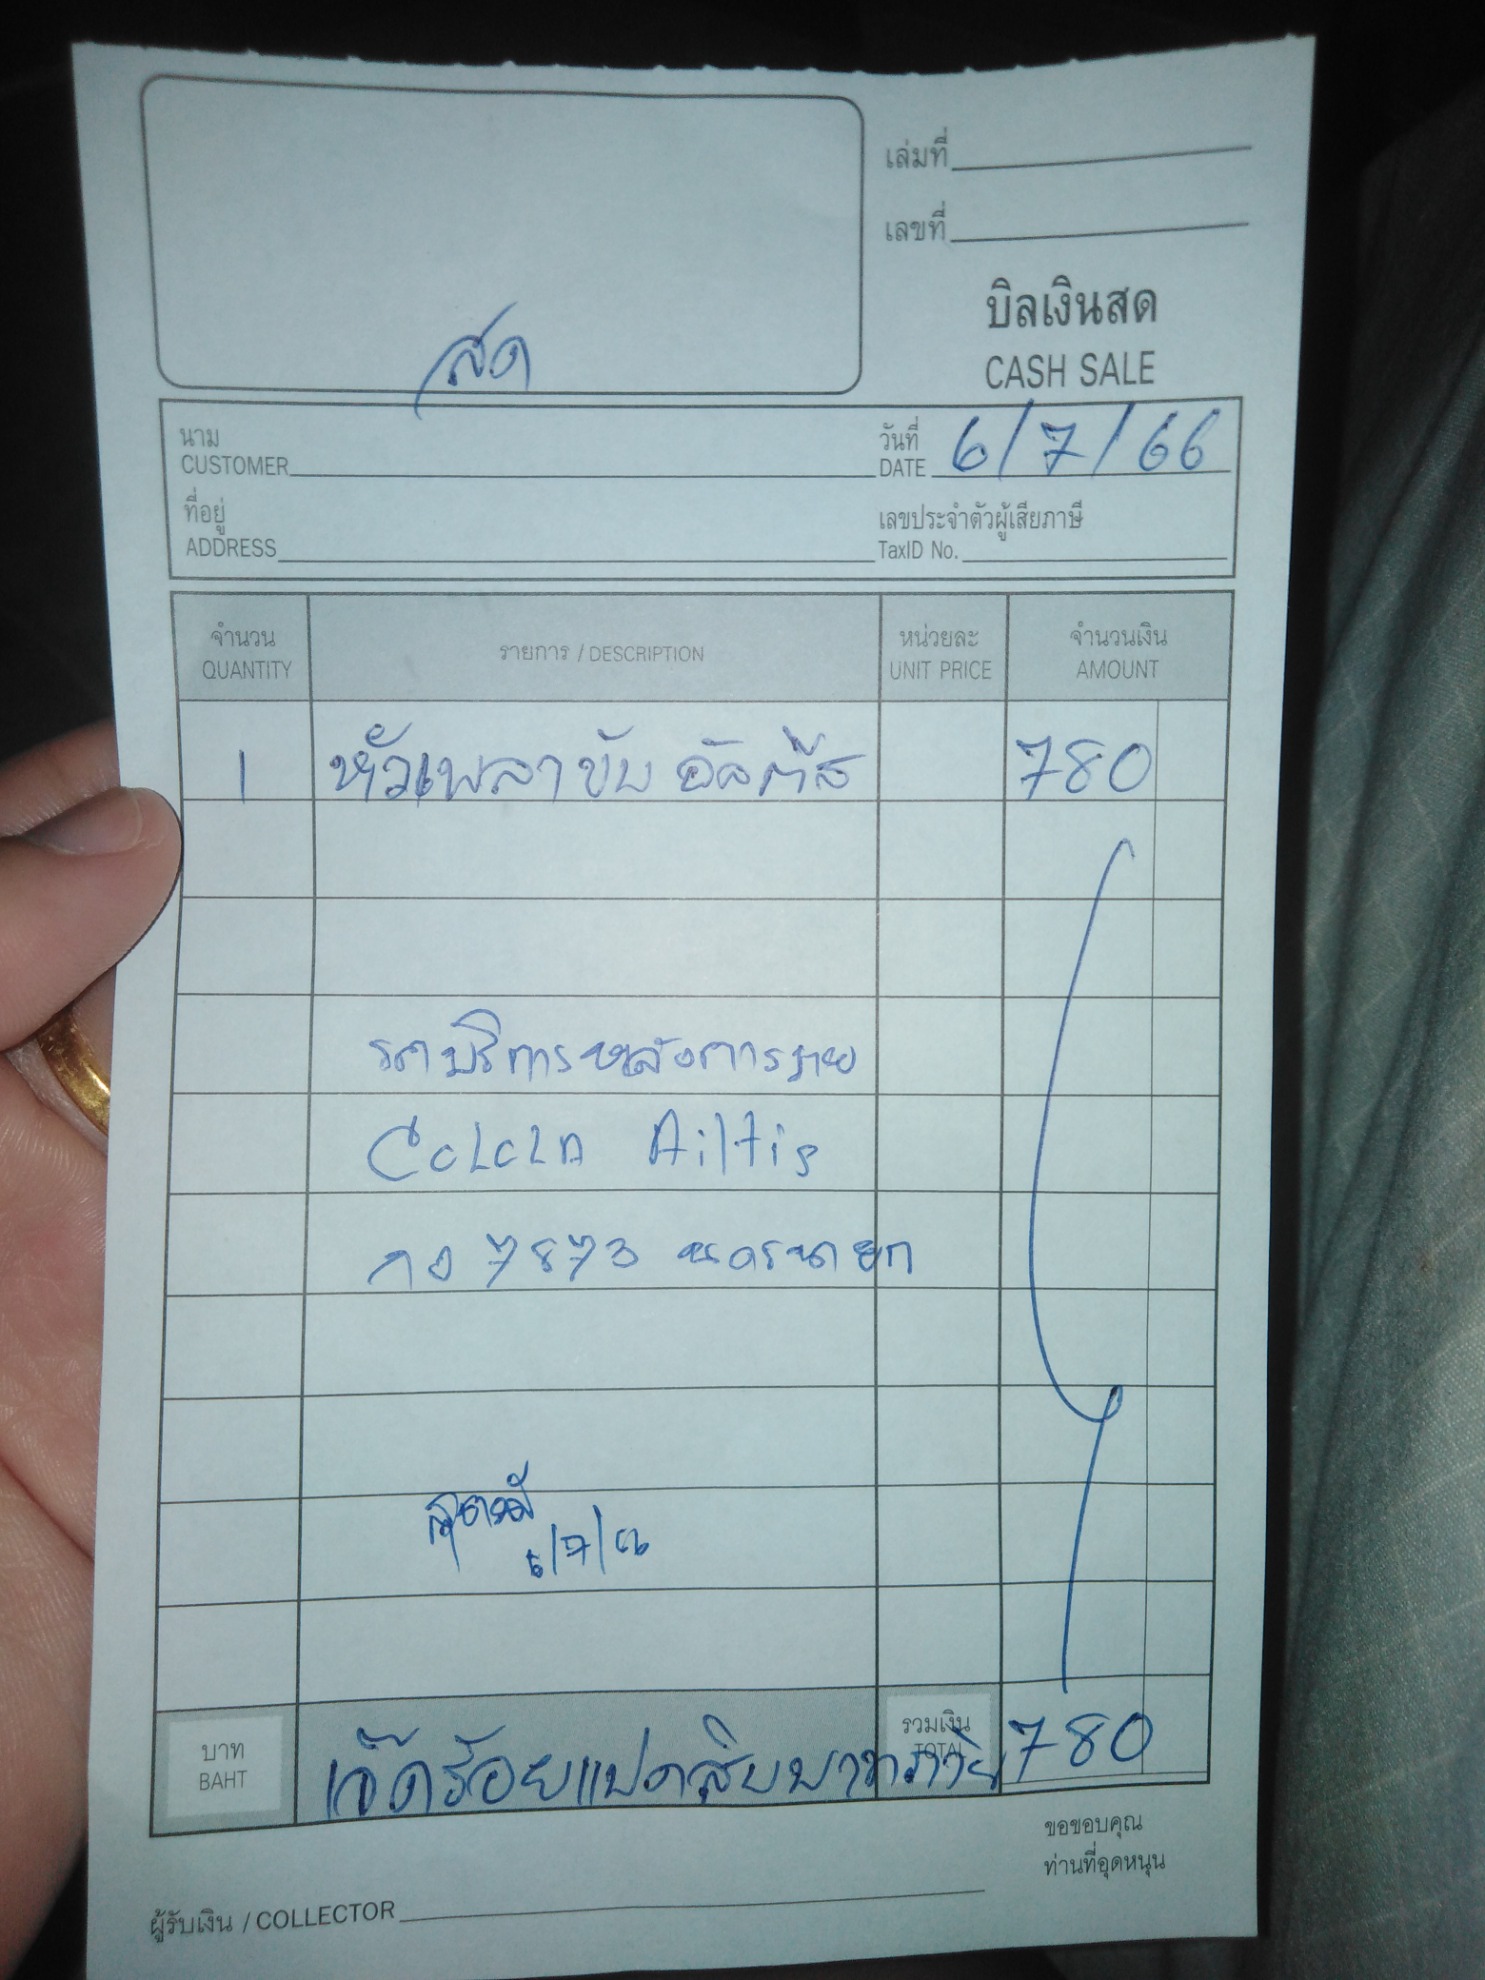 เล่มที่
เลขที่
บิลเงินสด
CASH SALE
สด
นาม
CUSTOMER
วันที่
DATE 6/7/66
ที่อยู่
ADDRESS
เลขประจำตัวผู้เสียภาษี
TaxID No.
จำนวน รายการ / DESCRIPTION หน่วยละ จำนวนเงิน
QUANTITY UNIT PRICE AMOUNT
1 หัวเพลาขับ อัลติส 780
รถบริการหลังการขาย
7873 นครนายก
6/7/66
บาท
BAHT
เจ็ดร้อยแปดสิบบาทถ้วน
รวมเงิน
TOTAL
780
ขอขอบคุณ
ท่านที่อุดหนุน
ผู้รับเงิน / COLLECTOR